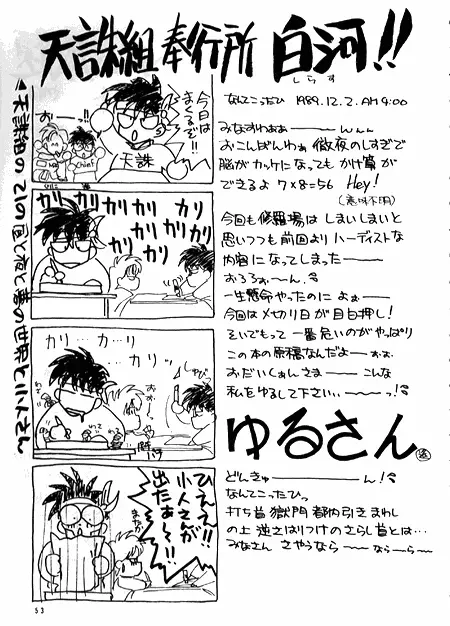 天誅組奉行所 白河!!
しらす
天誅組の21の昼と夜と暮の世界と小人さん
今日は
まくるぞ!!
おーっ!!
天誅
Chief
カリ カリ
カリ
カリ カリ
カリ カリ
カリ
カリ…カリ…
カリ…カリッ
しゃびっ
おおーっ
わて
わて
ひえええ!!
小人さんが
出たぁ〜!!
なんてこったひ 1989.12.2. AM9:00
みなすわぁぁーーーんんん
おこんばんわぁ 徹夜のしすぎで
脳がカッケになっても かけ算が
できるよ 7×8=56 Hey!
(意味不明)
今回も修羅場は しまいしまいと
思いつつも前回より ハーディストな
内容になってしまったーー
おろろぉ〜ん。
一生懸命やったのに よぉーー
今回はメカリ日が目白押し!
そいでもって 一番危いのがやっぱり
この本の原稿なんだよーぉぉ
おだいじん さまーー こんな
私をゆるして下さい、ーーっ!
ゆるさん
どんきゅーーーーーん!
なんてこったひっ
打ち首獄門 都内引きまわし
の上 逆さはりつけのさらし首とは…
みなさん さやうならーーならーらー
53